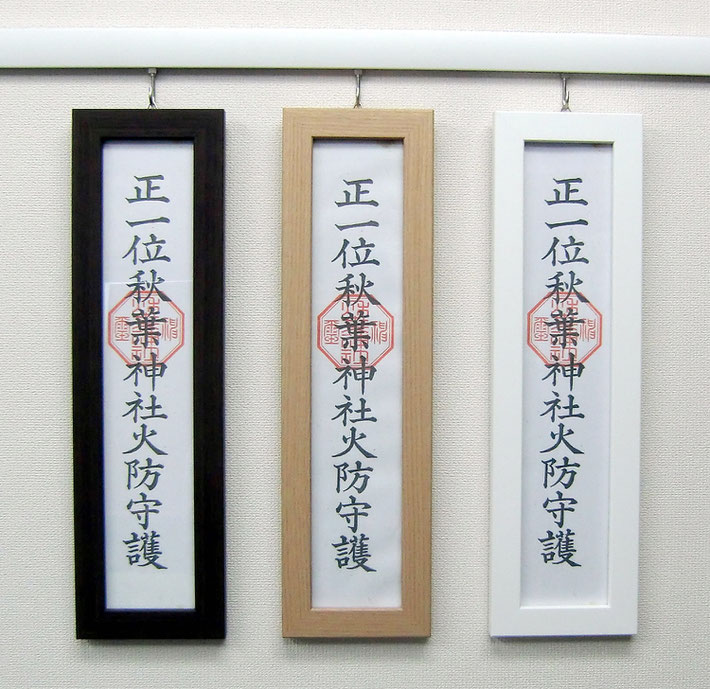 正一位秋葉神社火防守護
正一位秋葉神社火防守護
正一位秋葉神社火防守護